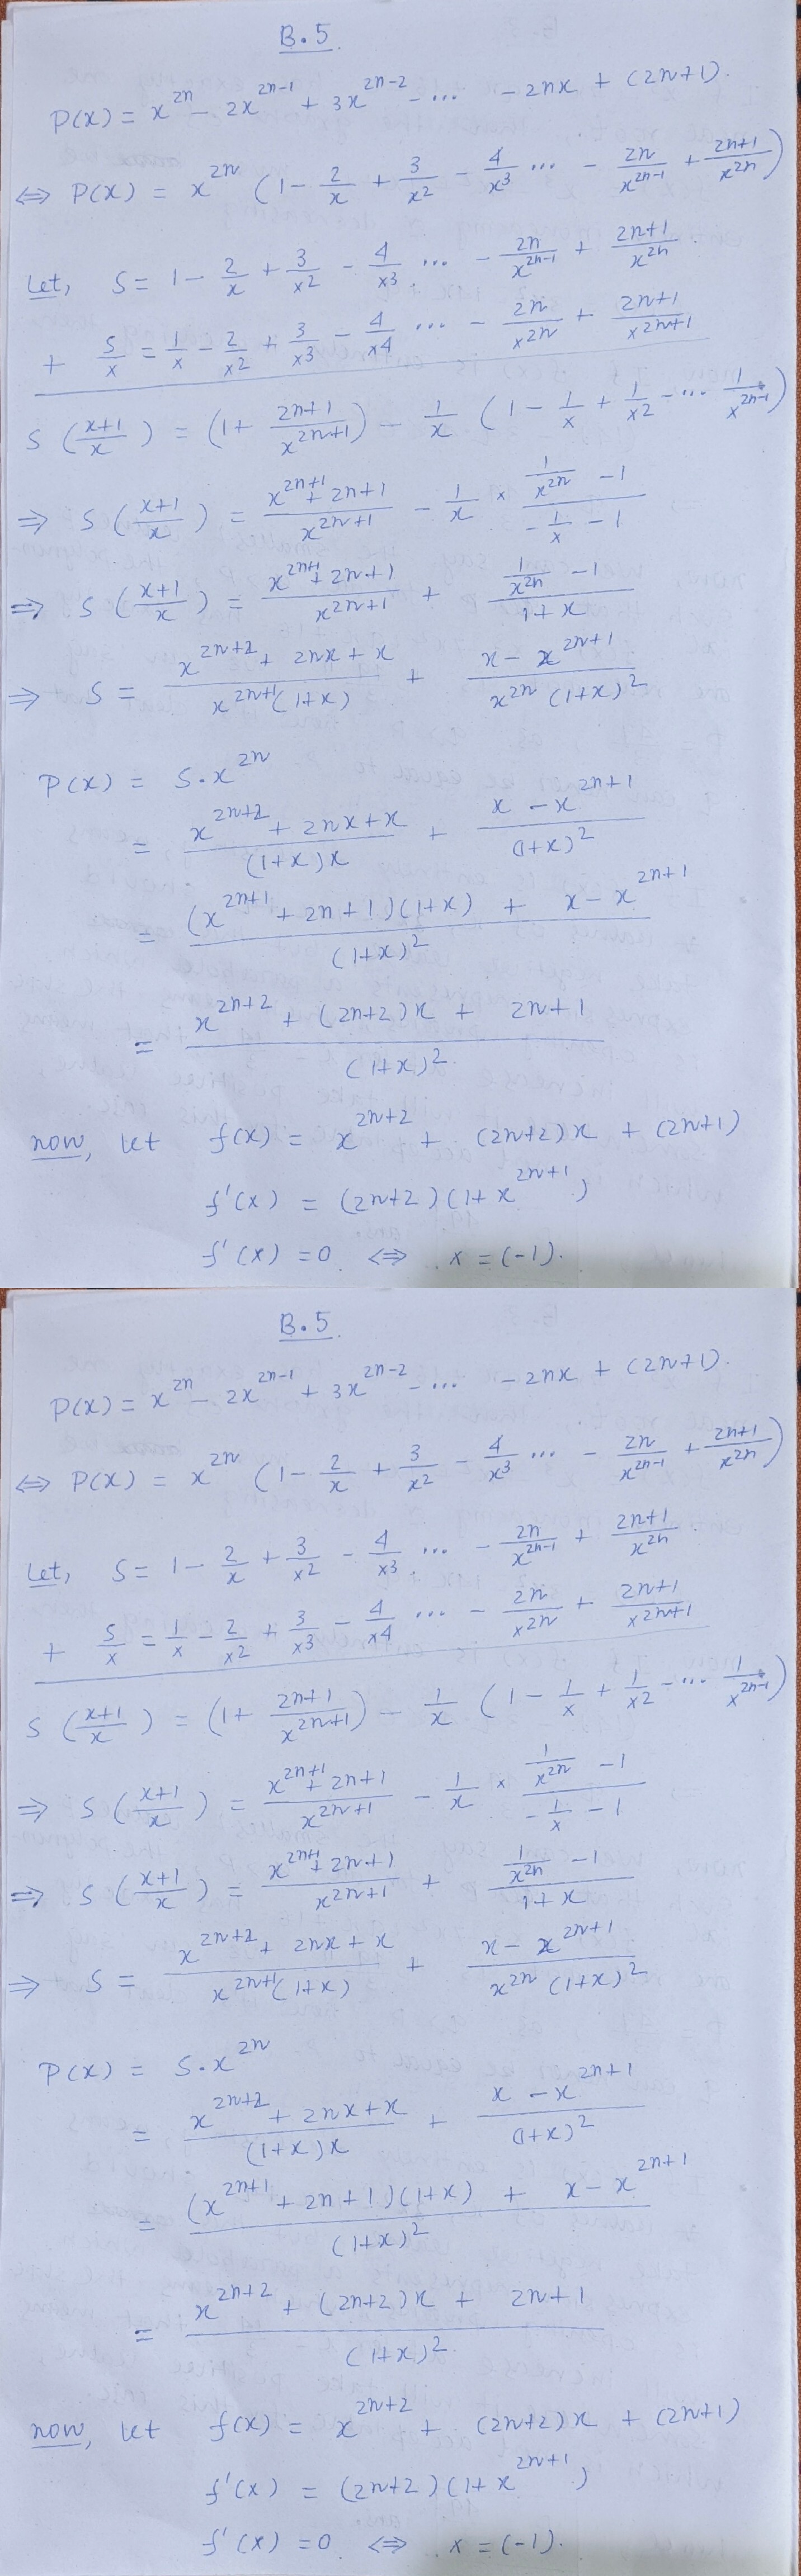 B.5
P(x) = x^{2n} - 2x^{2n-1} + 3x^{2n-2} - ... - 2nx + (2n+1).
⇔ P(x) = x^{2n} (1 - 2/x + 3/x^2 - 4/x^3 ... - 2n/x^{2n-1} + 2n+1/x^{2n})
Let, S = 1 - 2/x + 3/x^2 - 4/x^3 ... - 2n/x^{2n-1} + 2n+1/x^{2n}.
+ S/x = 1/x - 2/x^2 + 3/x^3 - 4/x^4 ... - 2n/x^{2n} + 2n+1/x^{2n+1}
S (x+1/x) = (1 + 2n+1/x^{2n+1}) - 1/x (1 - 1/x + 1/x^2 - ... 1/x^{2n-1})
⇒ S (x+1/x) = x^{2n+1} + 2n+1/x^{2n+1} - 1/x × (1/x^{2n} - 1)/(-1/x - 1)
⇒ S (x+1/x) = x^{2n+1} + 2n+1/x^{2n+1} + (1/x^{2n} - 1)/(1+x)
⇒ S = x^{2n+2} + 2nx + x/x^{2n+1}(1+x) + x - x^{2n+1}/x^{2n}(1+x)^2
P(x) = S.x^{2n}
= x^{2n+2} + 2nx + x/(1+x)x + x - x^{2n+1}/(1+x)^2
= (x^{2n+1} + 2n+1)(1+x) + x - x^{2n+1}/(1+x)^2
= x^{2n+2} + (2n+2)x + 2n+1/(1+x)^2
now, let f(x) = x^{2n+2} + (2n+2)x + (2n+1)
f'(x) = (2n+2)(1+x^{2n+1})
f'(x) = 0 ⇔ x = (-1).
B.5
P(x) = x^{2n} - 2x^{2n-1} + 3x^{2n-2} - ... - 2nx + (2n+1).
⇔ P(x) = x^{2n} (1 - 2/x + 3/x^2 - 4/x^3 ... - 2n/x^{2n-1} + 2n+1/x^{2n})
Let, S = 1 - 2/x + 3/x^2 - 4/x^3 ... - 2n/x^{2n-1} + 2n+1/x^{2n}.
+ S/x = 1/x - 2/x^2 + 3/x^3 - 4/x^4 ... - 2n/x^{2n} + 2n+1/x^{2n+1}
S (x+1/x) = (1 + 2n+1/x^{2n+1}) - 1/x (1 - 1/x + 1/x^2 - ... 1/x^{2n-1})
⇒ S (x+1/x) = x^{2n+1} + 2n+1/x^{2n+1} - 1/x × (1/x^{2n} - 1)/(-1/x - 1)
⇒ S (x+1/x) = x^{2n+1} + 2n+1/x^{2n+1} + (1/x^{2n} - 1)/(1+x)
⇒ S = x^{2n+2} + 2nx + x/x^{2n+1}(1+x) + x - x^{2n+1}/x^{2n}(1+x)^2
P(x) = S.x^{2n}
= x^{2n+2} + 2nx + x/(1+x)x + x - x^{2n+1}/(1+x)^2
= (x^{2n+1} + 2n+1)(1+x) + x - x^{2n+1}/(1+x)^2
= x^{2n+2} + (2n+2)x + 2n+1/(1+x)^2
now, let f(x) = x^{2n+2} + (2n+2)x + (2n+1)
f'(x) = (2n+2)(1+x^{2n+1})
f'(x) = 0 ⇔ x = (-1).